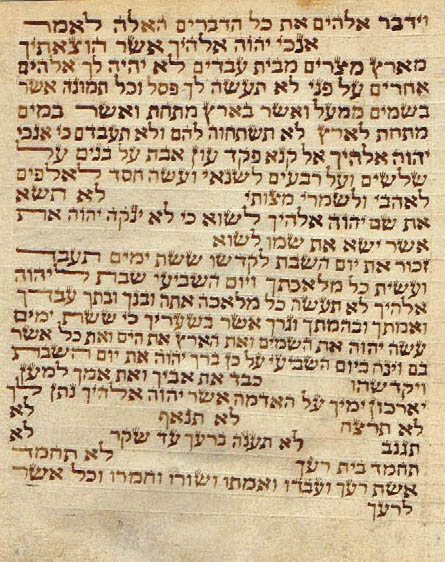 וידבר אלהים את כל הדברים האלה לאמר
אנכי יהוה אלהיך אשר הוצאתיך
מארץ מצרים מבית עבדים לא יהיה לך אלהים
אחרים על פני לא תעשה לך פסל וכל תמונה אשר
בשמים ממעל ואשר בארץ מתחת ואשר במים
מתחת לארץ לא תשתחוה להם ולא תעבדם כי אנכי
יהוה אלהיך אל קנא פקד עון אבת על בנים על
שלשים ועל רבעים לשנאי ועשה חסד לאלפים
לאהבי ולשמרי מצותי לא תשא
את שם יהוה אלהיך לשוא כי לא ינקה יהוה את
אשר ישא את שמו לשוא
זכור את יום השבת לקדשו ששת ימים תעבד
ועשית כל מלאכתך ויום השביעי שבת ליהוה
אלהיך לא תעשה כל מלאכה אתה ובנך ובתך עבדך
ואמתך ובהמתך וגרך אשר בשעריך כי ששת ימים
עשה יהוה את השמים ואת הארץ את הים ואת כל אשר
בם וינח ביום השביעי על כן ברך יהוה את יום השבת
ויקדשהו כבד את אביך ואת אמך למען
יארכון ימיך על האדמה אשר יהוה אלהיך נתן לך
לא תרצח לא תנאף לא
תגנב לא תענה ברעך עד שקר לא
תחמד בית רעך לא תחמד
אשת רעך ועבדו ואמתו ושורו וחמרו וכל אשר
לרעך